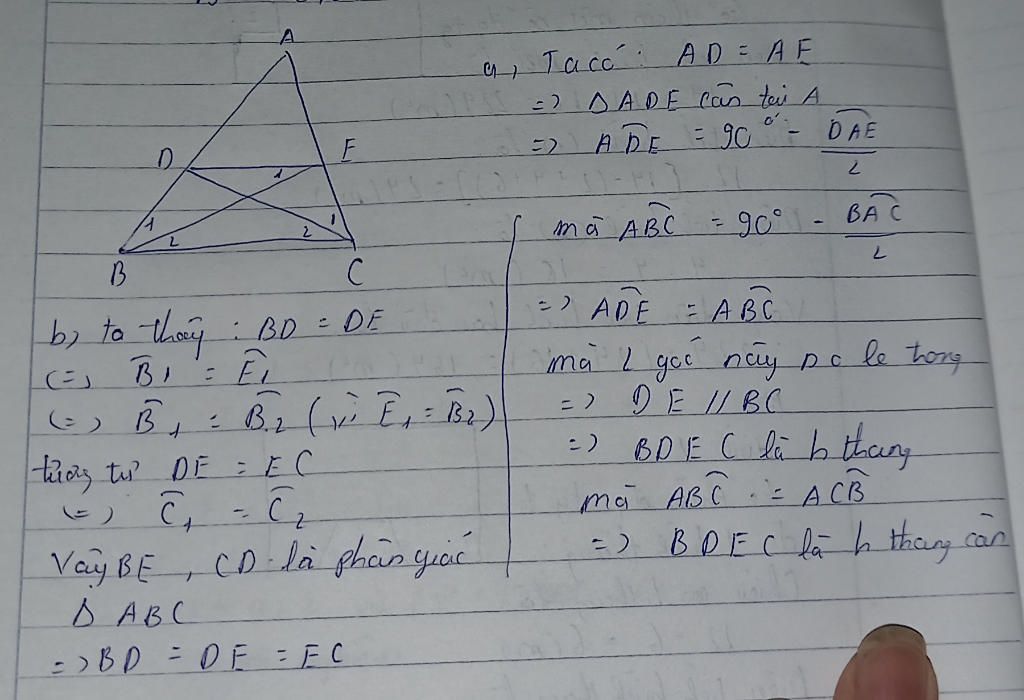 A
D
E
1
1
1
2
2
B
C
a, Ta có : AD = AE
=> Δ ADE cân tại A
=> ADE = 90° - DAE / 2
mà ABC = 90° - BAC / 2
=> ADE = ABC
mà 2 góc này so le trong
=> DE // BC
=> BDEC là h thang
mà ABC = ACB
=> BDEC là h thang cân
b, ta thấy : BD = DE
<=> B1 = E1
<=> B1 = B2 (vì E1 = B2)
tương tự DE = EC
<=> C1 = C2
Vậy BE , CD là phân giác
Δ ABC
=> BD = DE = EC